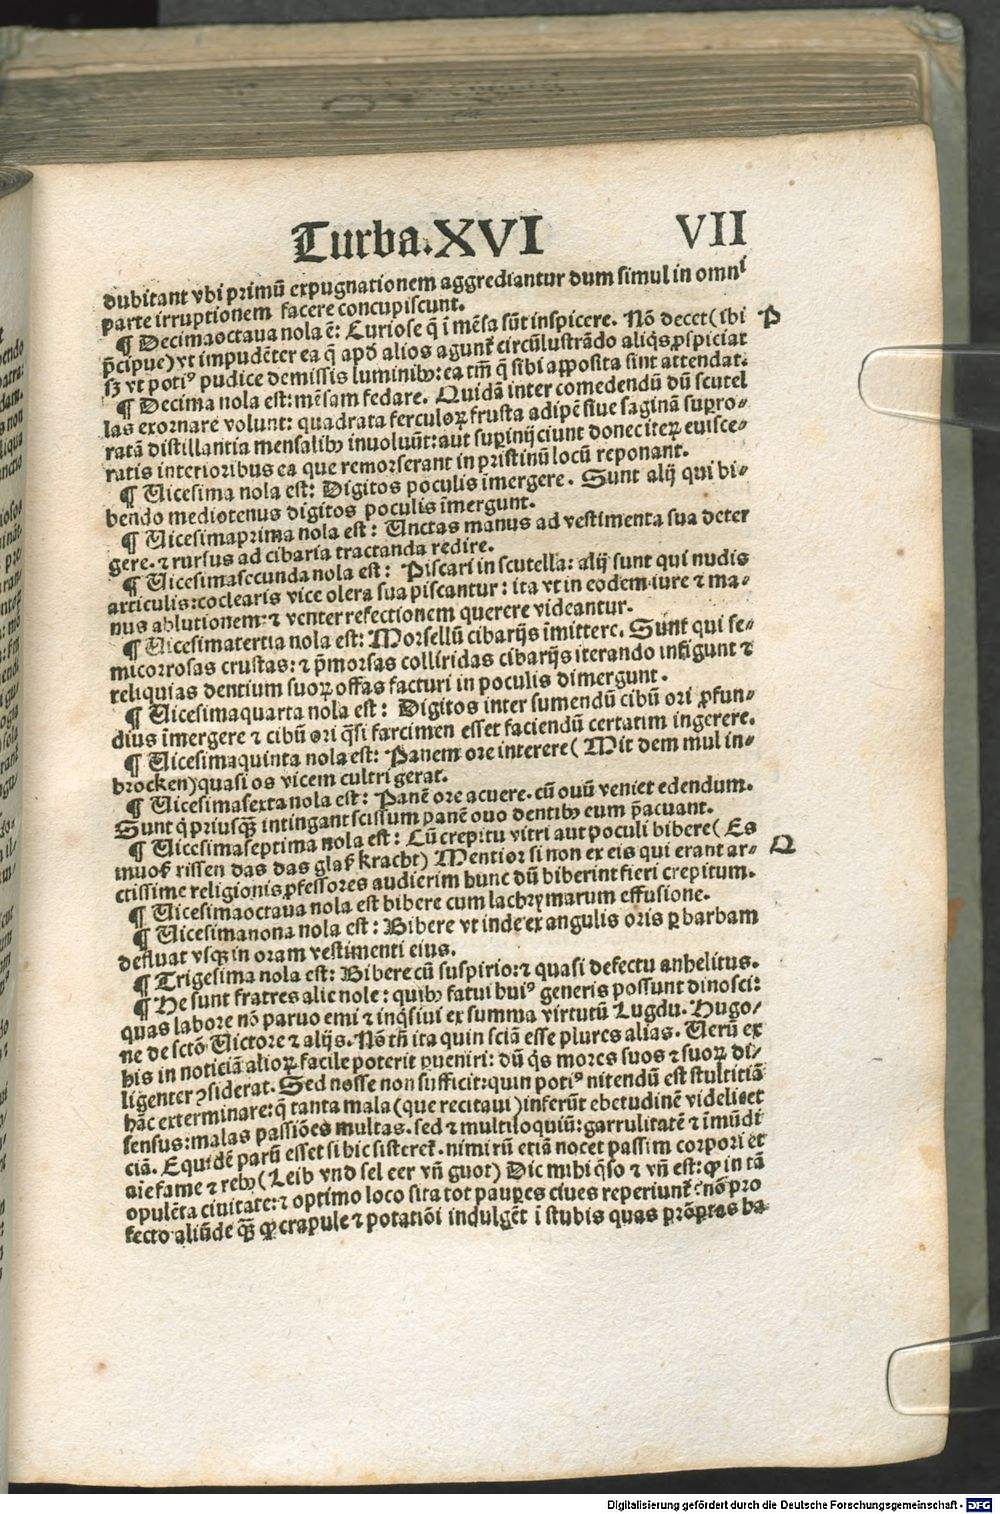 Turba.XVI VII
dubitant vbi primū expugnationem aggrediantur dum simul in omni
parte irruptionem facere concupiscunt.
¶ Decimaoctaua nola ē: Curiose q̄ ī mēsa sūt inspicere. Nō decet (ibi P
p̄cipue) vt impudēter ea q̄ apd̄ alios agunt᷑ circūlustrādo aliqs ꝑspiciat
sꝫ vt potiꝰ pudice demissis luminibꝰ: ea tm̄ q̄ sibi apposita sint attendat.
¶ Decima nola est: mēsam fedare. Quidā inter comedendū dū scutel
las exornare volunt: quadrata ferculoꝝ frusta adipē siue saginā suꝑro-
ratā distillantia mensalibꝰ inuoluūt: aut suꝑinijciunt donec iteꝝ euisce-
ratis interioribus ea que remorserant in pristinū locū reponant.
¶ Uicesima nola est: Digitos poculis īmergere. Sunt alij qui bi-
bendo mediotenus digitos poculis īmergunt.
¶ Uicesimaprima nola est: Unctas manus ad vestimenta sua deter
gere. ⁊ rursus ad cibaria tractanda redire.
¶ Uicesimasecunda nola est: Piscari in scutella: alij sunt qui nudis
articulis: coclearis vice olera sua piscantur: ita vt in eodem iure ⁊ ma-
nus ablutionem: ⁊ venter refectionem querere videantur.
¶ Uicesimatertia nola est: Morsellū cibarijs īmittere. Sunt qui se-
micorrosas crustas: ⁊ p̄morsas colliridas cibarijs iterando infigunt ⁊
reliquias dentium suoꝝ offas facturi in poculis dimergunt.
¶ Uicesimaquarta nola est: Digitos inter sumendū cibū ori ꝓfun-
dius īmergere ⁊ cibū ori q̄si farcimen esset faciendū certatim ingerere.
¶ Uicesimaquinta nola est: Panem ore interere (Mit dem mul in-
brocken) quasi os vicem cultri gerat.
¶ Uicesimasexta nola est: Panē ore acuere. cū ouū veniet edendum.
Sunt q̇ priusqꝫ intingant scissum panē ouo dentibꝰ eum p̄acuant.
¶ Uicesimaseptima nola est: Cū crepitu vitri aut poculi bibere (Es Q
muoß rissen das das glaß kracht) Mentior si non ex eis qui erant ar-
ctissime religionis ꝓfessores audierim hunc dū biberint fieri crepitum.
¶ Uicesimaoctaua nola est bibere cum lachrymarum effusione.
¶ Uicesimanona nola est: Bibere vt inde ex angulis oris ꝑ barbam
defluat vsqꝫ in oram vestimenti eius.
¶ Trigesima nola est: Bibere cū suspirio: ⁊ quasi defectu anhelitus.
¶ He sunt fratres alie nole: quibꝰ fatui huiꝰ generis possunt dinosci:
quas labore nō paruo emi ⁊ inq̇siui ex summa virtutū Lugdu. Hugo-
ne de sctō Victore ⁊ alijs. Nō tn̄ ita quin sciā esse plures alias. Uerū ex
his in noticiā alioꝝ facile poterit ꝑueniri: dū q̇s mores suos ⁊ suoꝝ di-
ligenter ꝯsiderat. Sed nosse non sufficit: quin potiꝰ nitendū est stultitiā
hāc exterminare: q̄ tanta mala (que recitaui) inferūt hebetudinē videlicet
sensus: malas passiōes multas. sed ⁊ multiloquiū: garrulitatē ⁊ īmūdi
ciā. Equidē parū esset si hic sisteret᷑. nimirū etiā nocet passim corpori et
aīe fame ⁊ rebꝰ (Leib vnd sel eer vn̄ guot) Dic mihi q̄so ⁊ vn̄ est: ꝙ in tā
opulēta ciuitate: ⁊ optimo loco sita tot pauꝑes ciues reperiunt᷑: nō pro
fecto aliūde qꝫ ꝙ crapule ⁊ potatiōi indulgēt ī stubis quas prōptas ha-
Digitalisierung gefördert durch die Deutsche Forschungsgemeinschaft - DFG